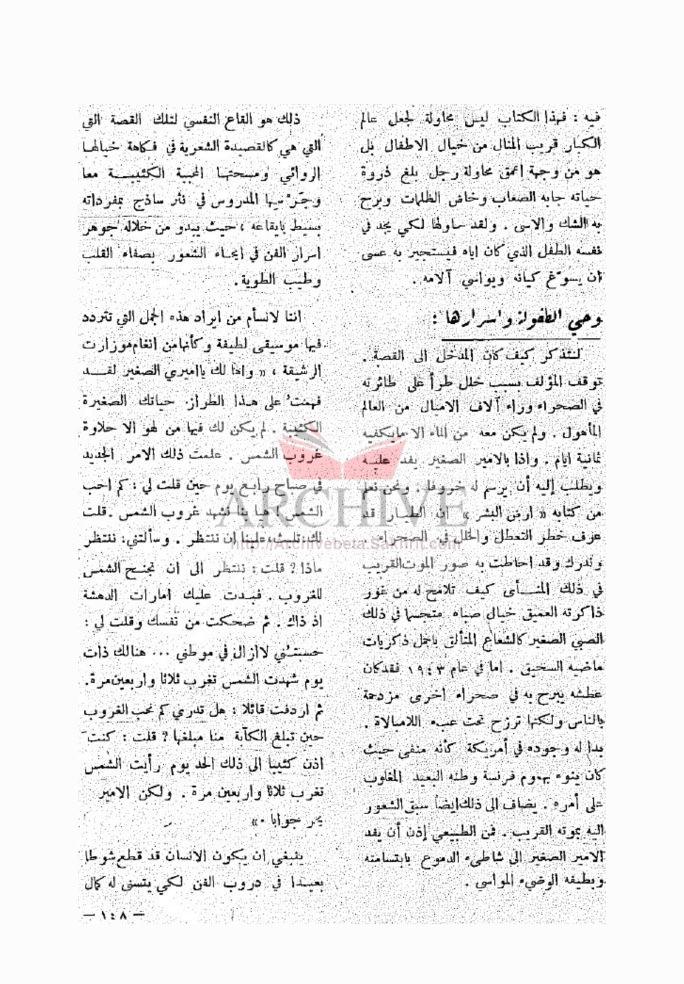 فيه : فهذا الكتاب ليس محاولة لجعل عالم
الكبار قريب المنال من خيال الاطفال بل
هو من وجهة اعمق محاولة رجل بلغ ذروة
حياته جابه الصعاب وخاض الظلمات وبرح
به الشك والاسى . ولقد حاولها لكي يجد في
نفسه الطفل الذي كان اياه فيستجير به عسى
ان يسوّغ كيانه ويواسي آلامه .
وحي الطفولة واسرارها :
لنتذكر كيف كان المدخل الى القصة .
توقف المؤلف بسبب خلل طرأ على طائرته
في الصحراء وراء آلاف الاميال من العالم
المأهول . ولم يكن معه من الماء الا مايكفيه
ثمانية ايام . واذا بالامير الصغير يفد عليه
ويطلب إليه أن يرسم له خروفا . ونحن نعلم
من كتابه « ارض البشر » ان الطيار قد
عرف خطر التعطل والخلل في الصحراء
وندرك وقد احاطت به صور الموت القريب
في ذلك المنـأى كيف تلامح له من غور
ذاكرته العميق خيال صباه متجسما في ذلك
الصبي الصغير كالشعاع المتألق باجمل ذكريات
ماضيه السحيق . اما في عام ١٩٤٣ فقد كان
عطشه يبرح به في صحراء اخرى مزدحمة
بالناس ولكنها ترزح تحت عبء اللامبالاة .
بدا له وجوده في أمريكة كأنه منفى حيث
كان ينوء بهموم فرنسة وطنه البعيد المغلوب
على أمره . يضاف الى ذلك ايضا سبق الشعور
اليه بموته القريب . فمن الطبيعي إذن أن يفد
الامير الصغير الى شاطىء الدموع بابتسامته
وبطيفه الوضيء المواسي .
ذلك هو القاع النفسي لتلك القصة التي
التي هي كالقصيدة الشعرية في فكاهة خيالها
الروائي ومسحتها المحببة الكئيبـة معا
وجرسها المدروس في نثر ساذج بمفرداته
بسيط بايقاعه ، حيث يبدو من خلاله جوهر
اسرار الفن في ايحاء الشعور بصفاء القلب
وطيب الطوية .
اننا لانسأم من ايراد هذه الجمل التي تتردد
فيها موسيقى لطيفة وكأنها من انغام موزارت
الرشيقة ، « واها لك ياأميري الصغير لقـد
فهمت على هـذا الطراز حياتك الصغيرة
الكئيبة . لم يكن لك فيها من لهو الا حلاوة
غروب الشمس . علمت ذلك الامر الجديد
في صباح رابع يوم حين قلت لي : كم احب
الشمس ! هيا بنا نشهد غروب الشمس . قلت
لك : تلبث، علينا ان ننتظر . وسألتني: ننتظر
ماذا ؟ قلت : ننتظر الى ان تجنح الشمس
للغروب . فبـدت عليك امارات الدهشة
اذ ذاك . ثم ضحكت من نفسك وقلت لي :
حسبتني لاازال في موطني ... هنالك ذات
يوم شهدت الشمس تغرب ثلاثا واربعين مرة.
ثم اردفت قائلا : هل تدري كم نحب الغروب
حين تبلغ الكآبة منا مبلغها ? قلت : كنت
اذن كئيبا الى ذلك الحد يوم رأيت الشمس
تغرب ثلاثا واربعين مرة . ولكن الامير
يحر جوابا . »
ينبغي ان يكون الانسان قد قطع شوطا
بعيـدا في دروب الفن لكي يتسنى له كمال
— ١٤٨ —
ARCHIVE
http://Archivebeta.Sakhrit.com